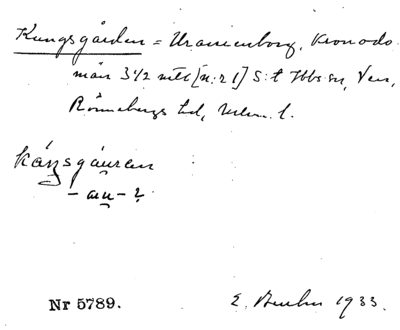 Kungsgården = Uranienborg, Kronodo-
män 3 1/2 mtl [n:r 1] S:t Ibbs sn, Ven,
Rönnebergs hd, Malm. l.
kåŋsgáuren
- au - ?
Nr 5789. E. 1933.